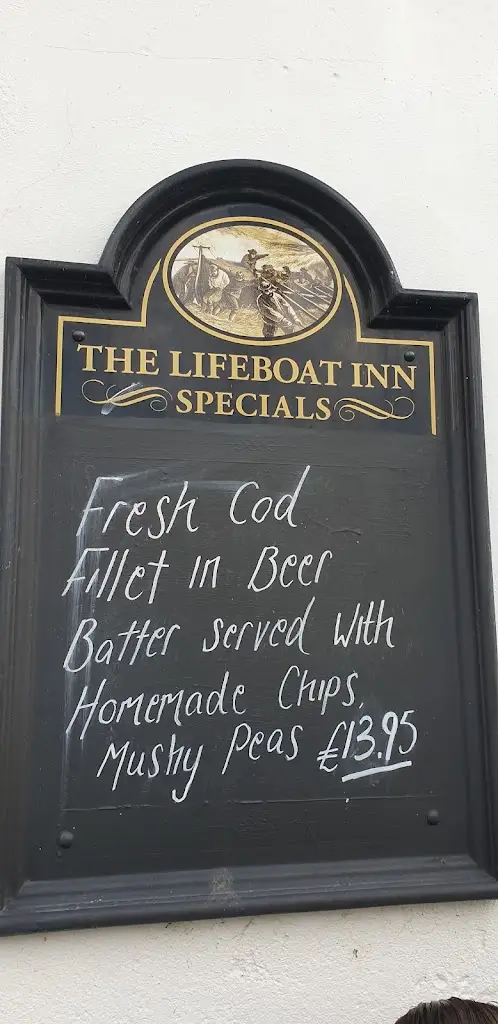 THE LIFEBOAT INN
SPECIALS
Fresh Cod
Fillet in Beer
Batter served with
Homemade Chips,
Mushy Peas £13.95